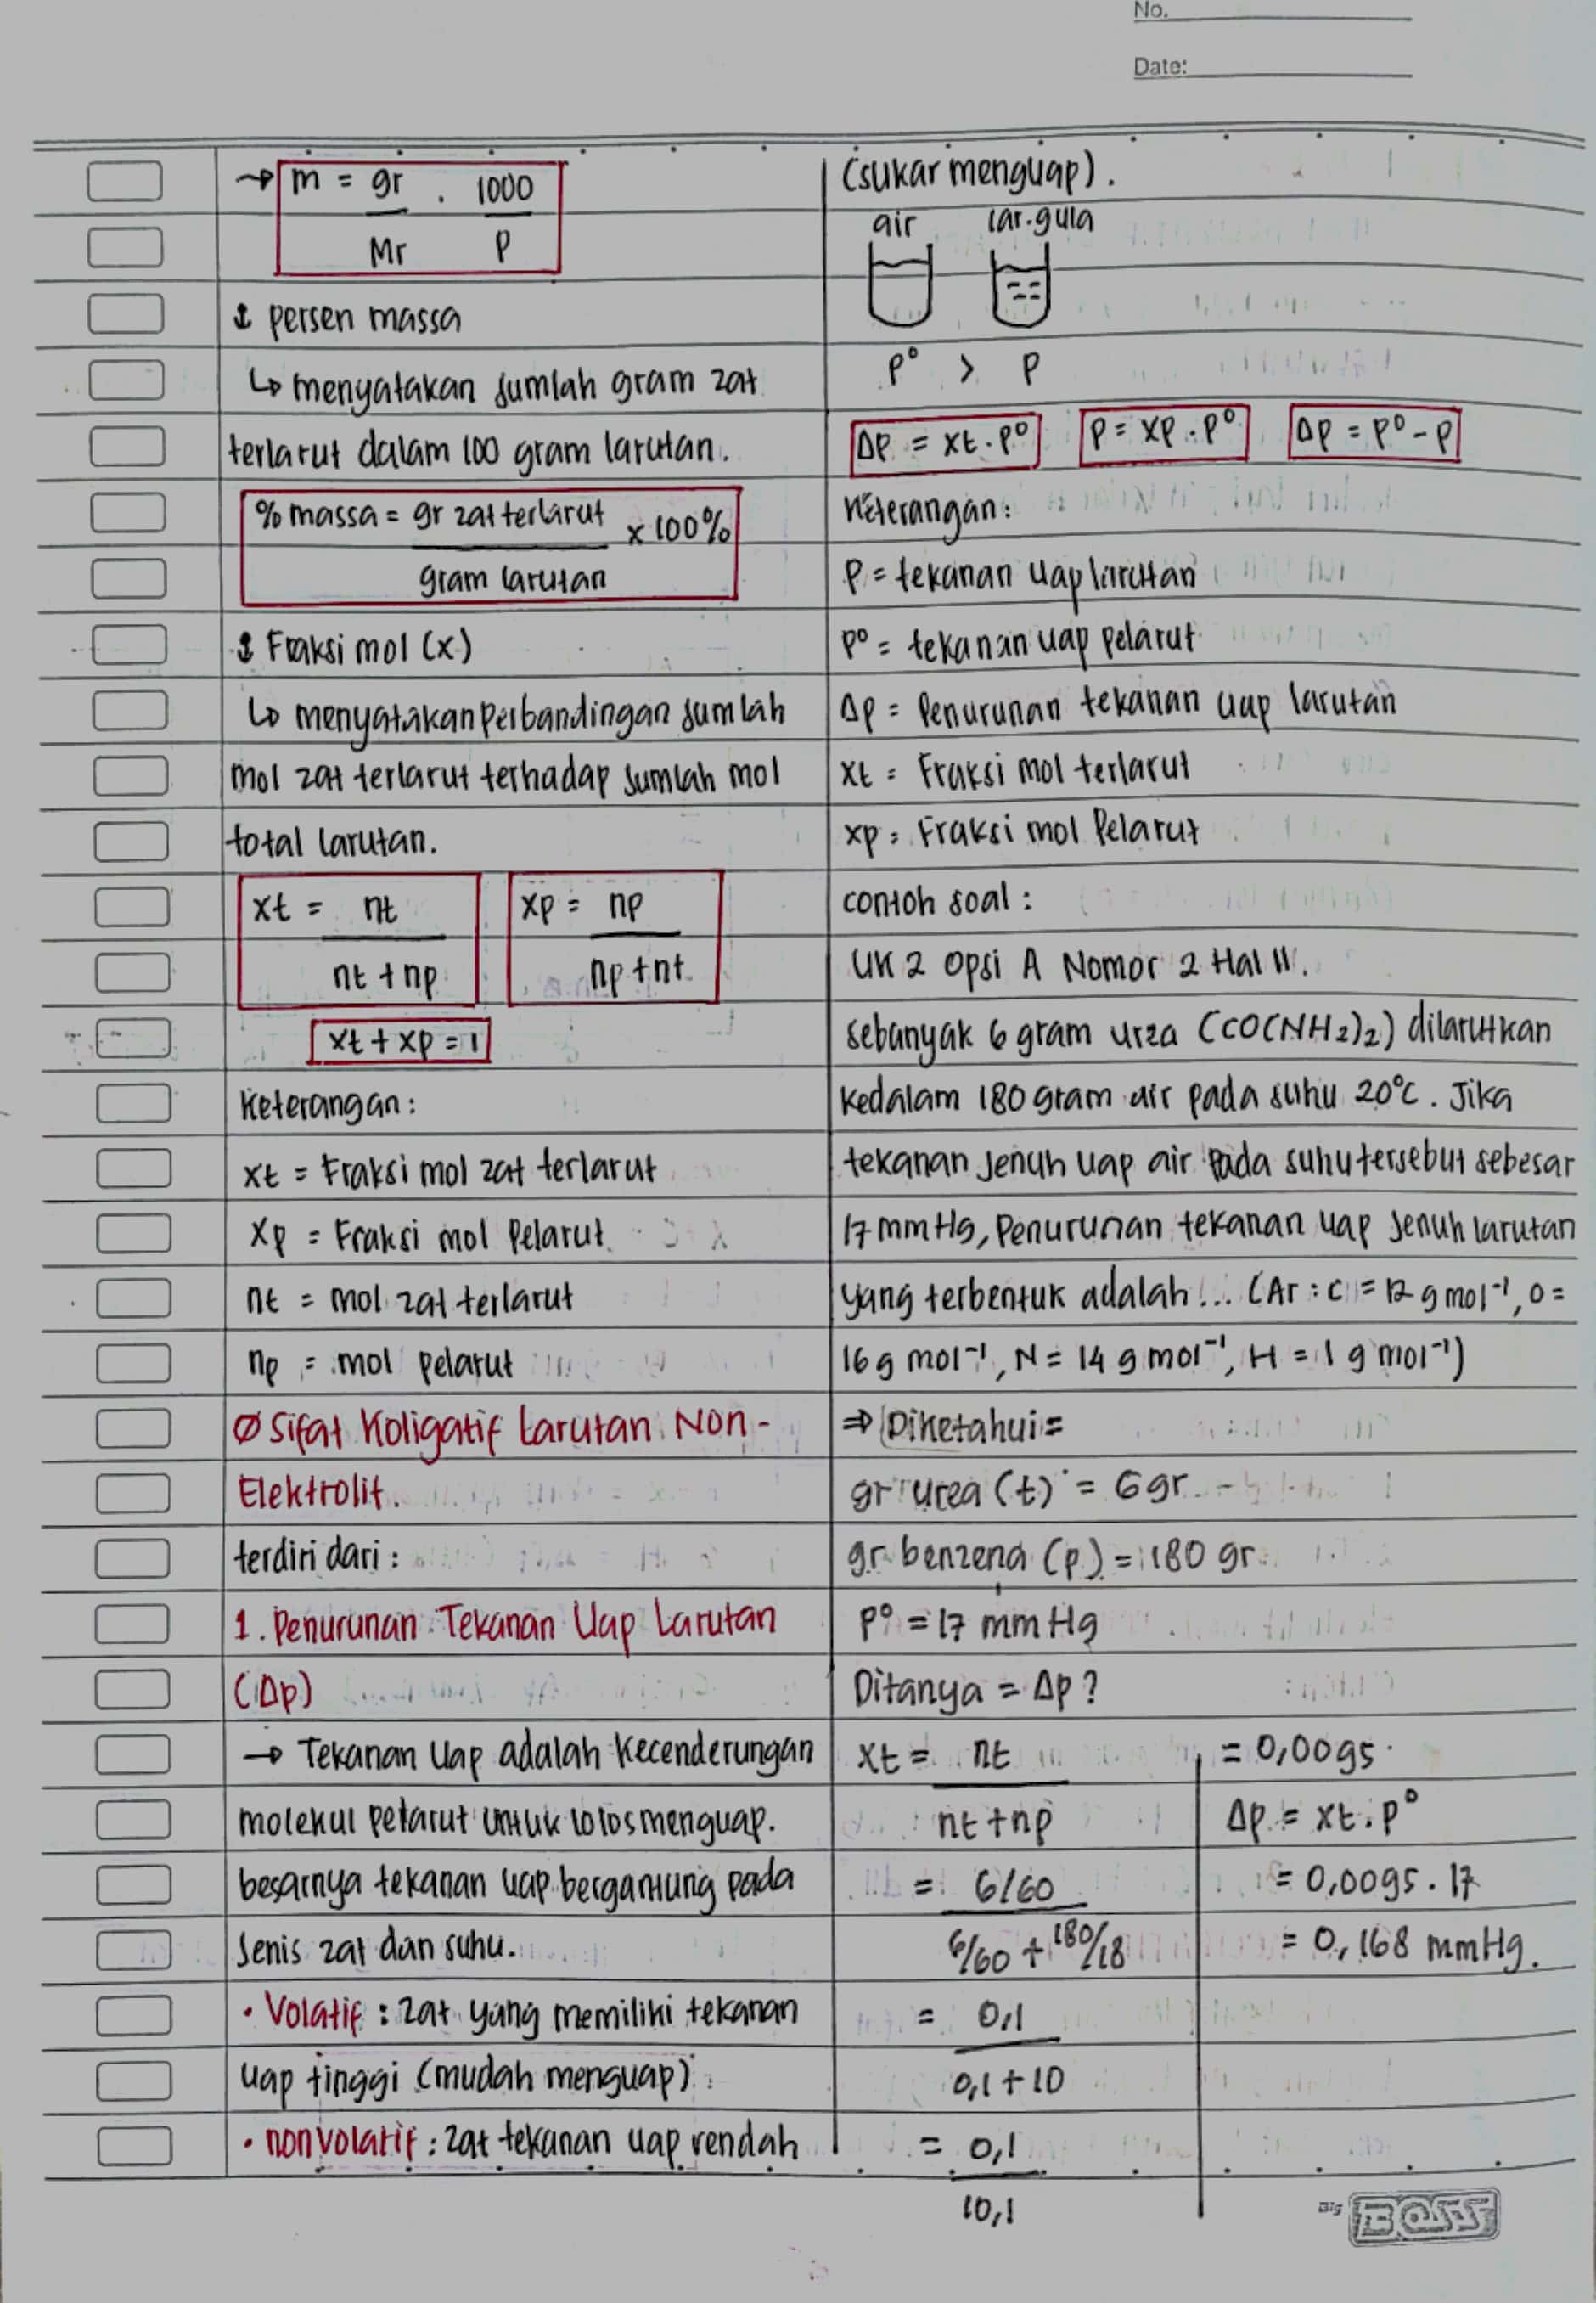 No.
Date:
→ m = gr . 1000
Mr P
persen massa
↳ menyatakan jumlah gram zat
terlarut dalam 100 gram larutan.
% massa = gr zat terlarut x 100%
gram larutan
Fraksi mol (x)
↳ menyatakan perbandingan jumlah
mol zat terlarut terhadap jumlah mol
total larutan.
xt = nt xp = np
nt + np np + nt
xt + xp = 1
Keterangan:
xt = Fraksi mol zat terlarut
xp = Fraksi mol Pelarut
nt = mol zat terlarut
np = mol pelarut
Ø Sifat Koligatif Larutan Non-
Elektrolit.
terdiri dari:
1. Penurunan Tekanan Uap Larutan
(Δp)
→ Tekanan Uap adalah Kecenderungan
molekul pelarut untuk lolos menguap.
besarnya tekanan uap bergantung pada
Jenis zat dan suhu.
• Volatif : zat yang memiliki tekanan
uap tinggi (mudah menguap).
• nonvolatif : zat tekanan uap rendah
(sukar menguap).
air lar.gula
P° > P
Δp = xt . p° p = xp . p° Δp = p° - p
Keterangan:
P = tekanan uap larutan
P° = tekanan uap pelarut
Δp = Penurunan tekanan uap larutan
xt = Fraksi mol terlarut
xp = Fraksi mol Pelarut
contoh soal :
UK 2 Opsi A Nomor 2 Hal 11.
sebanyak 6 gram urea (CO(NH2)2) dilarutkan
kedalam 180 gram air pada suhu 20°C. Jika
tekanan Jenuh uap air pada suhu tersebut sebesar
17 mmHg, Penurunan tekanan uap Jenuh larutan
yang terbentuk adalah... (Ar : C = 12 g mol⁻¹, O =
16 g mol⁻¹, N = 14 g mol⁻¹, H = 1 g mol⁻¹)
⇒ Diketahui =
gr urea (t) = 6 gr
gr benzena (p) = 180 gr
P° = 17 mmHg
Ditanya = Δp ?
xt = nt
nt + np
= 6/60
6/60 + 180/18
= 0,1
0,1 + 10
= 0,1
10,1
= 0,0095
Δp = xt . p°
= 0,0095 . 17
= 0,168 mmHg.
Big BOSS